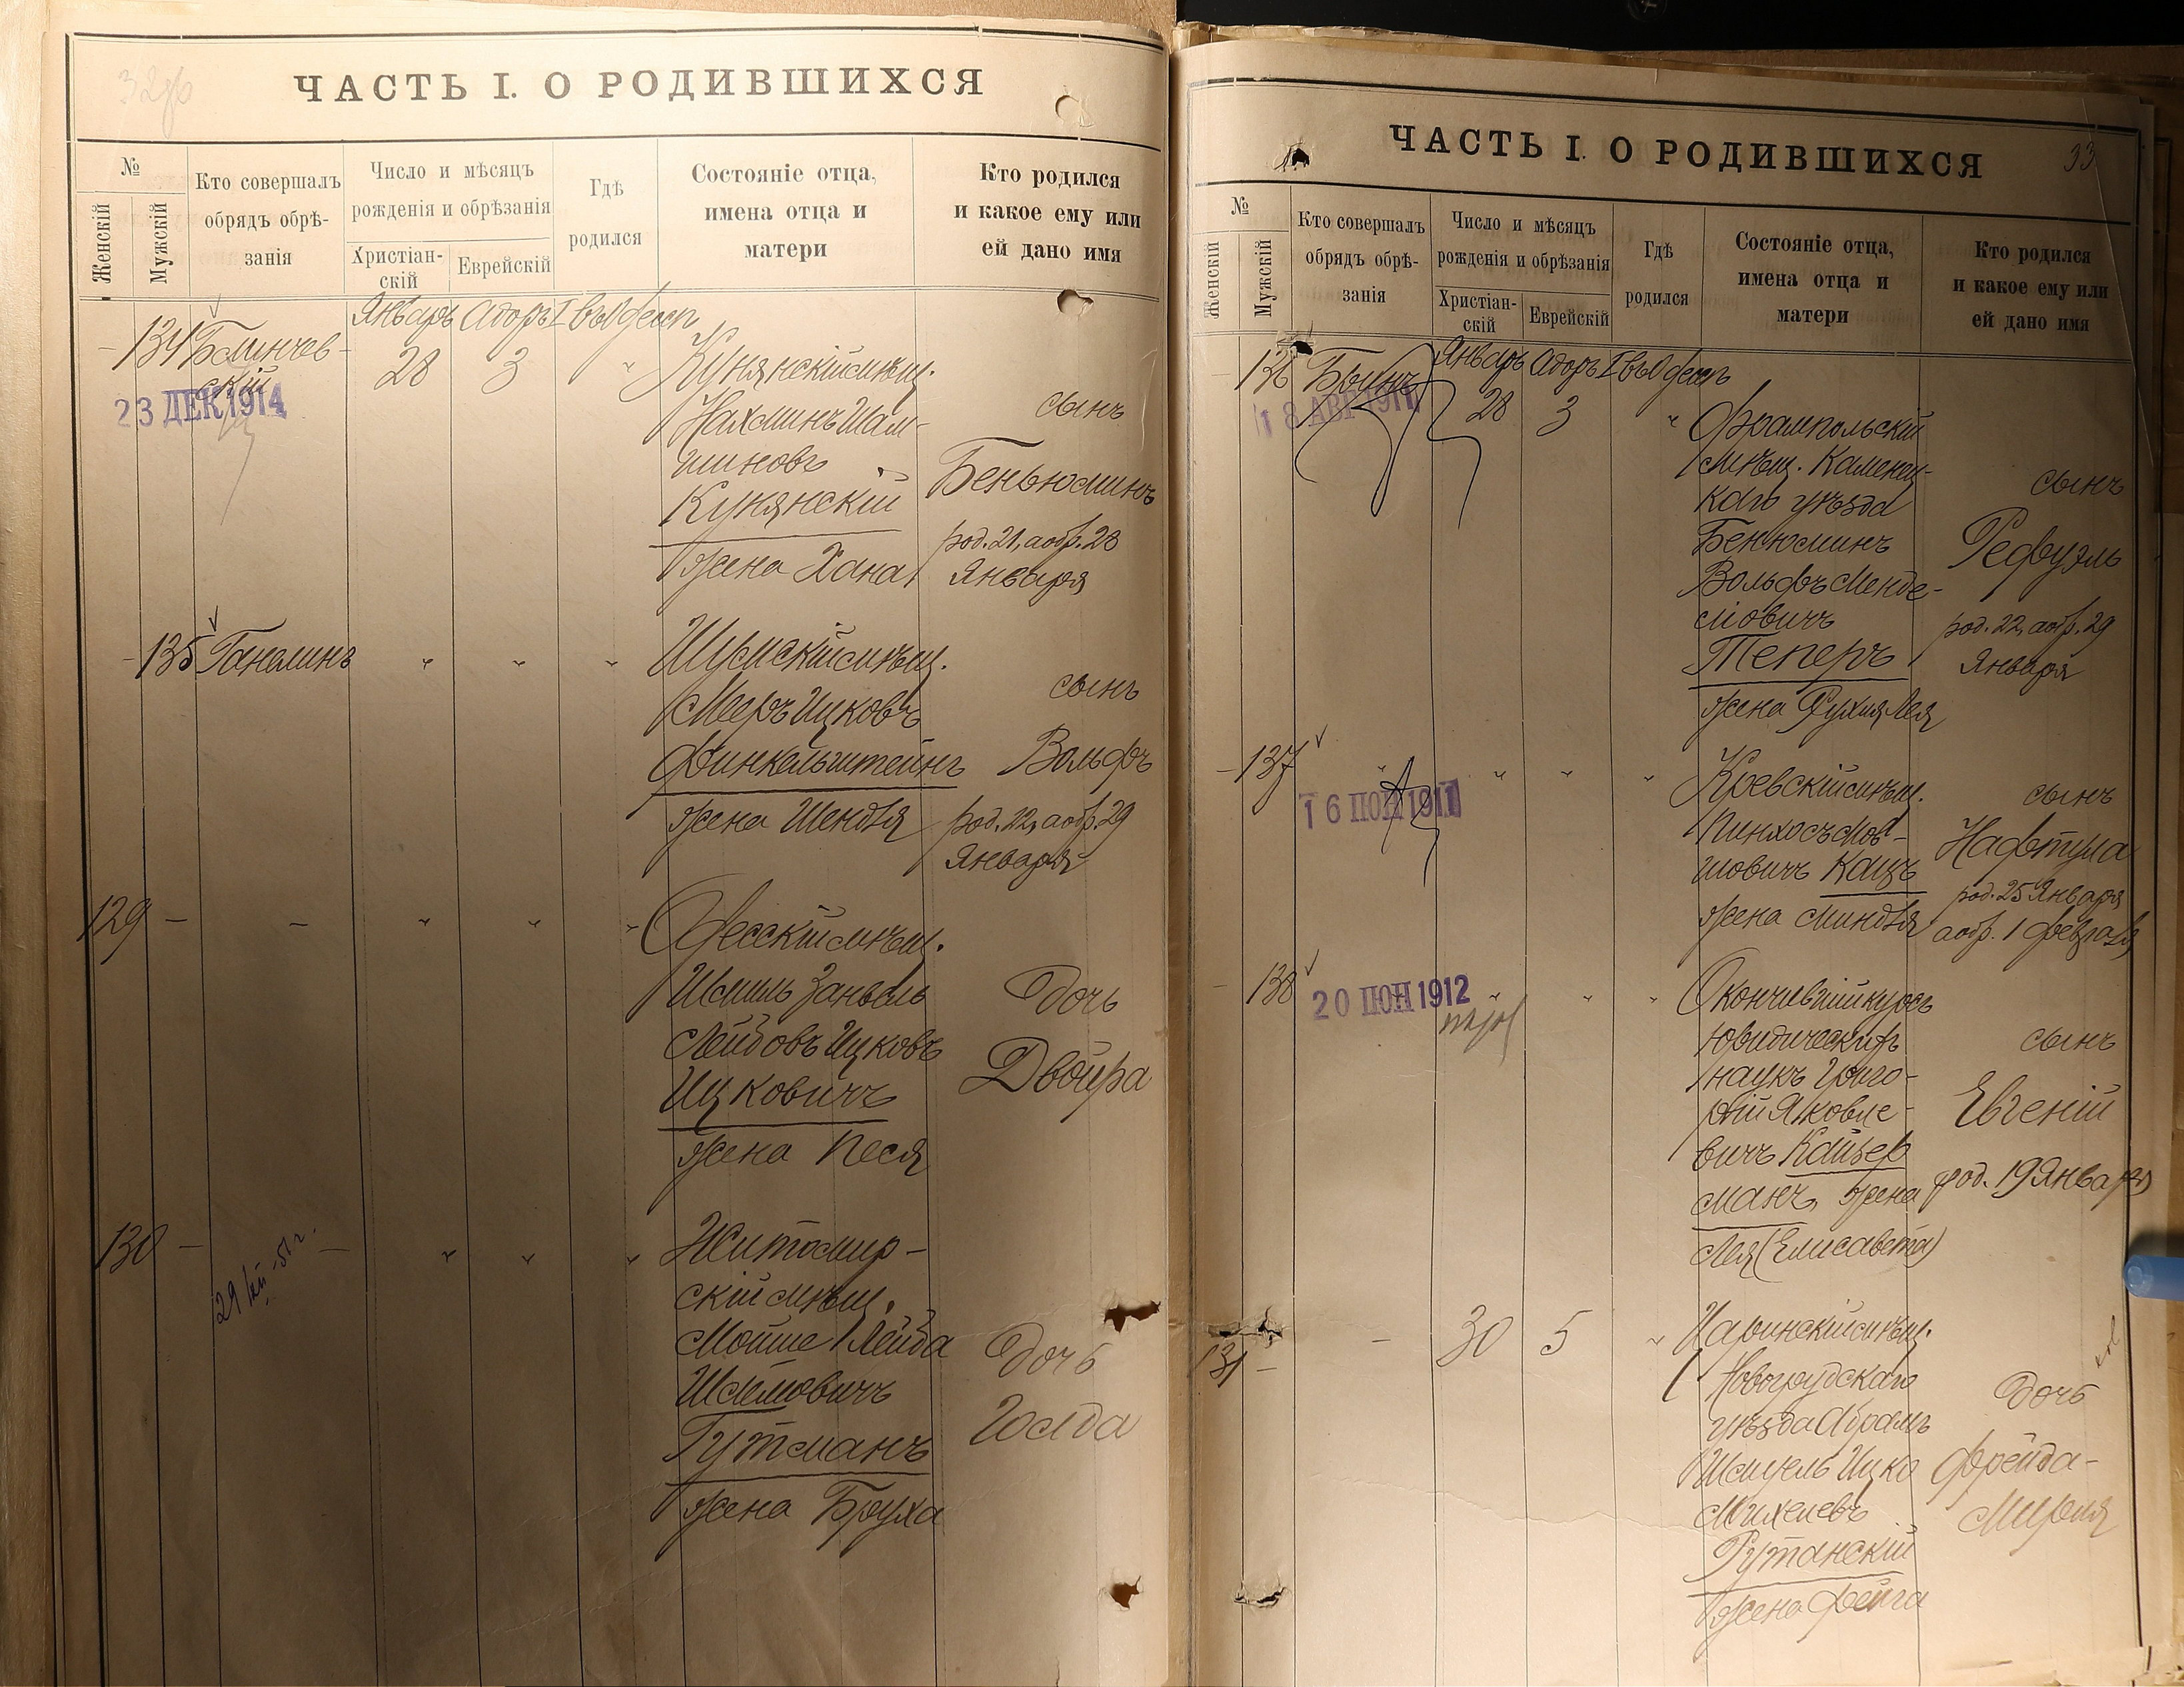 32об
ЧАСТЬ I. О РОДИВШИХСЯ
№
Женскій
Мужскій
Кто совершалъ
обрядъ обрѣ-
занія
Число и мѣсяцъ
рожденія и обрѣзанія
Христіан-
скій
Еврейскій
Гдѣ
родился
Состояніе отца,
имена отца и
матери
Кто родился
и какое ему или
ей дано имя
Январь Адоръ I въ Одессѣ
134 Блинчев-
скій
23 ДЕК 1914
28 3 "
Кунянскій мѣщ.
Нахминъ Шам-
шиновъ
Кунянскій
жена Хана
сынъ
Беньюминъ
род. 21, а обр. 28
Января
135 Ганелинъ " " "
Шумскій мѣщ.
Мееръ Ицковъ
Финкельштейнъ
жена Шендля
сынъ
Вольфъ
род. 22, а обр. 29
Января
129 – – " " "
Одесскій мѣщ.
Шмиль Занвель
Лейбовъ Ицковъ
Ицковичъ
жена Песя
дочь
Двойра
130 – – " " "
29/XII-51 г.
Житомир-
скій мѣщ.
Мойше Лейба
Шлемовичъ
Гутманъ
жена Бруха
дочь
Голда
33
ЧАСТЬ I. О РОДИВШИХСЯ
№
Женскій
Мужскій
Кто совершалъ
обрядъ обрѣ-
занія
Число и мѣсяцъ
рожденія и обрѣзанія
Христіан-
скій
Еврейскій
Гдѣ
родился
Состояніе отца,
имена отца и
матери
Кто родился
и какое ему или
ей дано имя
Январь Адоръ I въ Одессѣ
136 Бринъ
18 АВГ 1911
28 3 "
Фрампольскій
мѣщ. Каменец-
каго уѣзда
Бенюминъ
Вольфъ Менде-
ліовичъ
Теперъ
жена Рухля Лея
сынъ
Рефуэль
род. 22, а обр. 29
Января
137 " " " "
16 ІЮН 1911
Кревскій мѣщ.
Пинхосъ Мов-
шовичъ Кацъ
жена Миндля
сынъ
Нафтула
род. 25 Января
а обр. 1 февраля
138 " " "
20 ІЮН 1912
Окончившій курсъ
юридическихъ
наукъ Григо-
рій Яковле-
вичъ Кайзер
манъ, жена
Лея (Елисавета)
сынъ
Евгеній
род. 19 Января
131 – – 30 5 "
Цыринскій мѣщ.
Новогрудскаго
уѣзда Абрамъ
Шмуель Ицко
Михелевъ
Рутанскій
жена Фейга
дочь
Фрейда-
Мирия